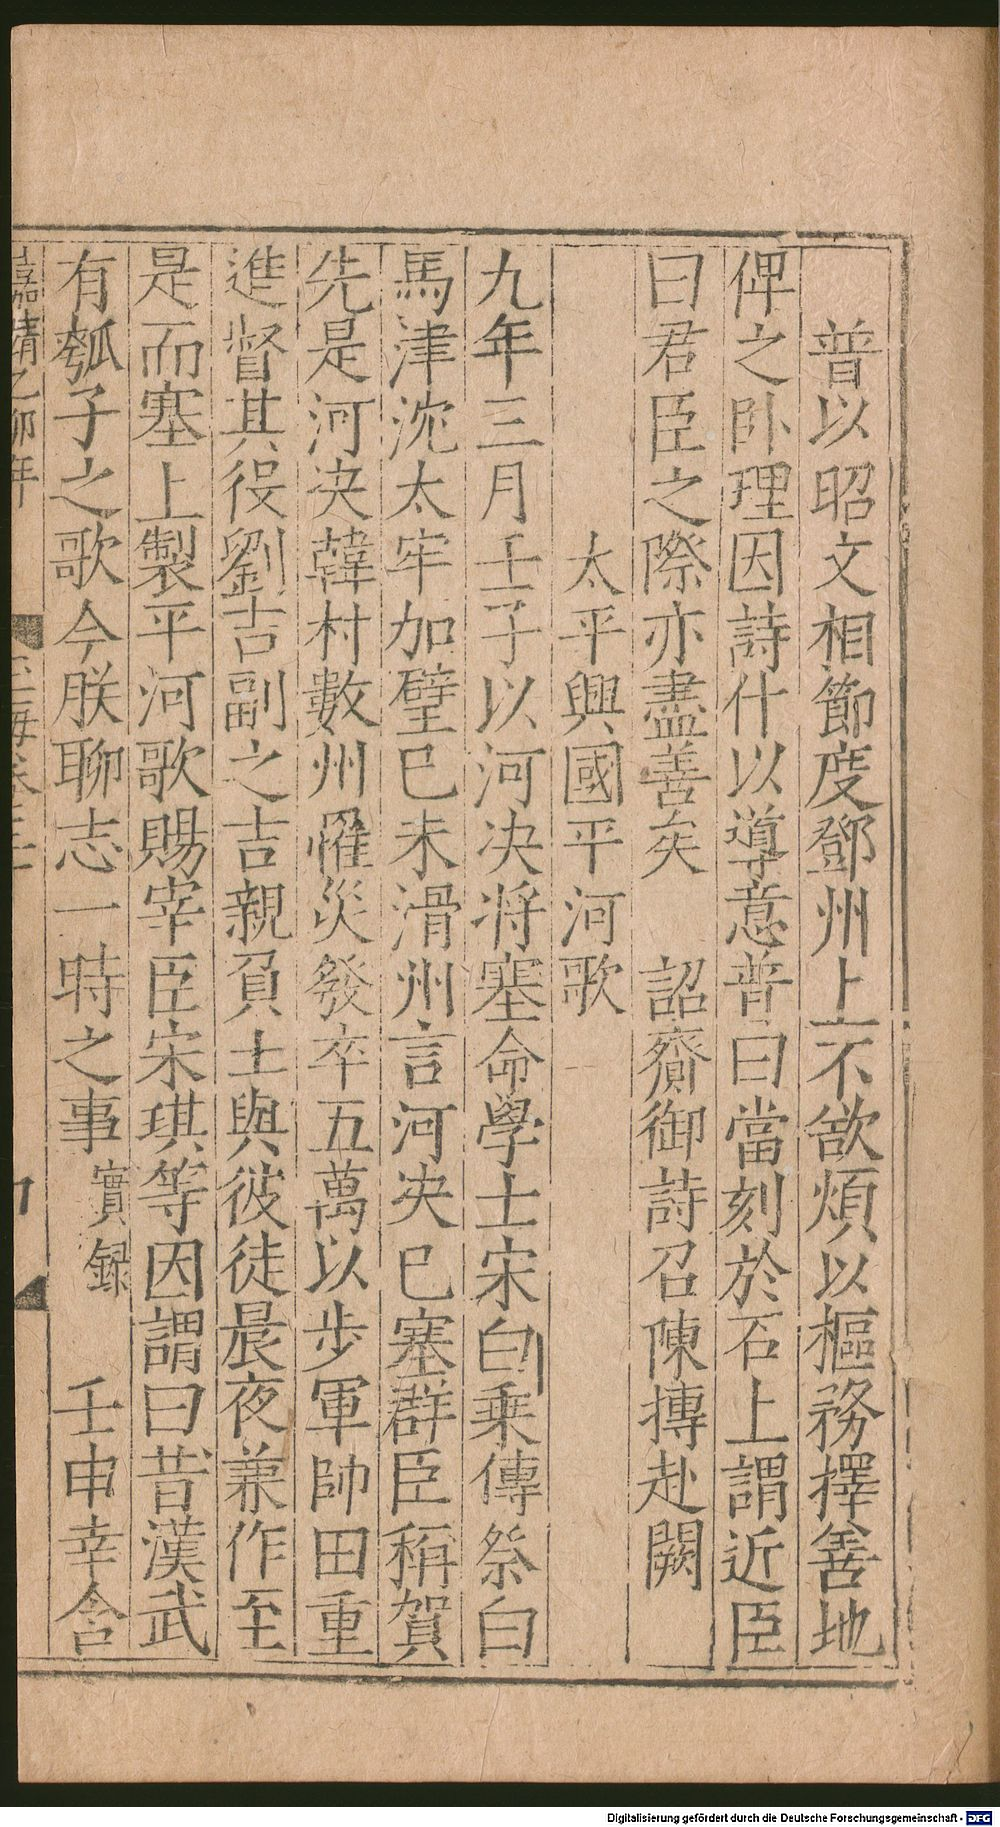 普以昭文相節度鄧州上不欲煩以樞務擇善地
俾之卧理因詩什以導意普曰當刻於石上謂近臣
曰君臣之際亦盡善矣　詔齎御詩召陳摶赴闕
太平興國平河歌
九年三月壬子以河决將塞命學士宋白乗傳祭白
馬津沈太牢加璧巳未滑州言河决巳塞群臣稱賀
先是河决韓村數州罹災發卒五萬以步軍帥田重
進督其役劉吉副之吉親負土與彼徒晨夜兼作至
是而塞上製平河歌賜宰臣宋琪等因謂曰昔漢武
有瓠子之歌今朕聊志一時之事實録　壬申幸含
嘉靖乙卯年　玉海卷三十
Digitalisierung gefördert durch die Deutsche Forschungsgemeinschaft - DFG